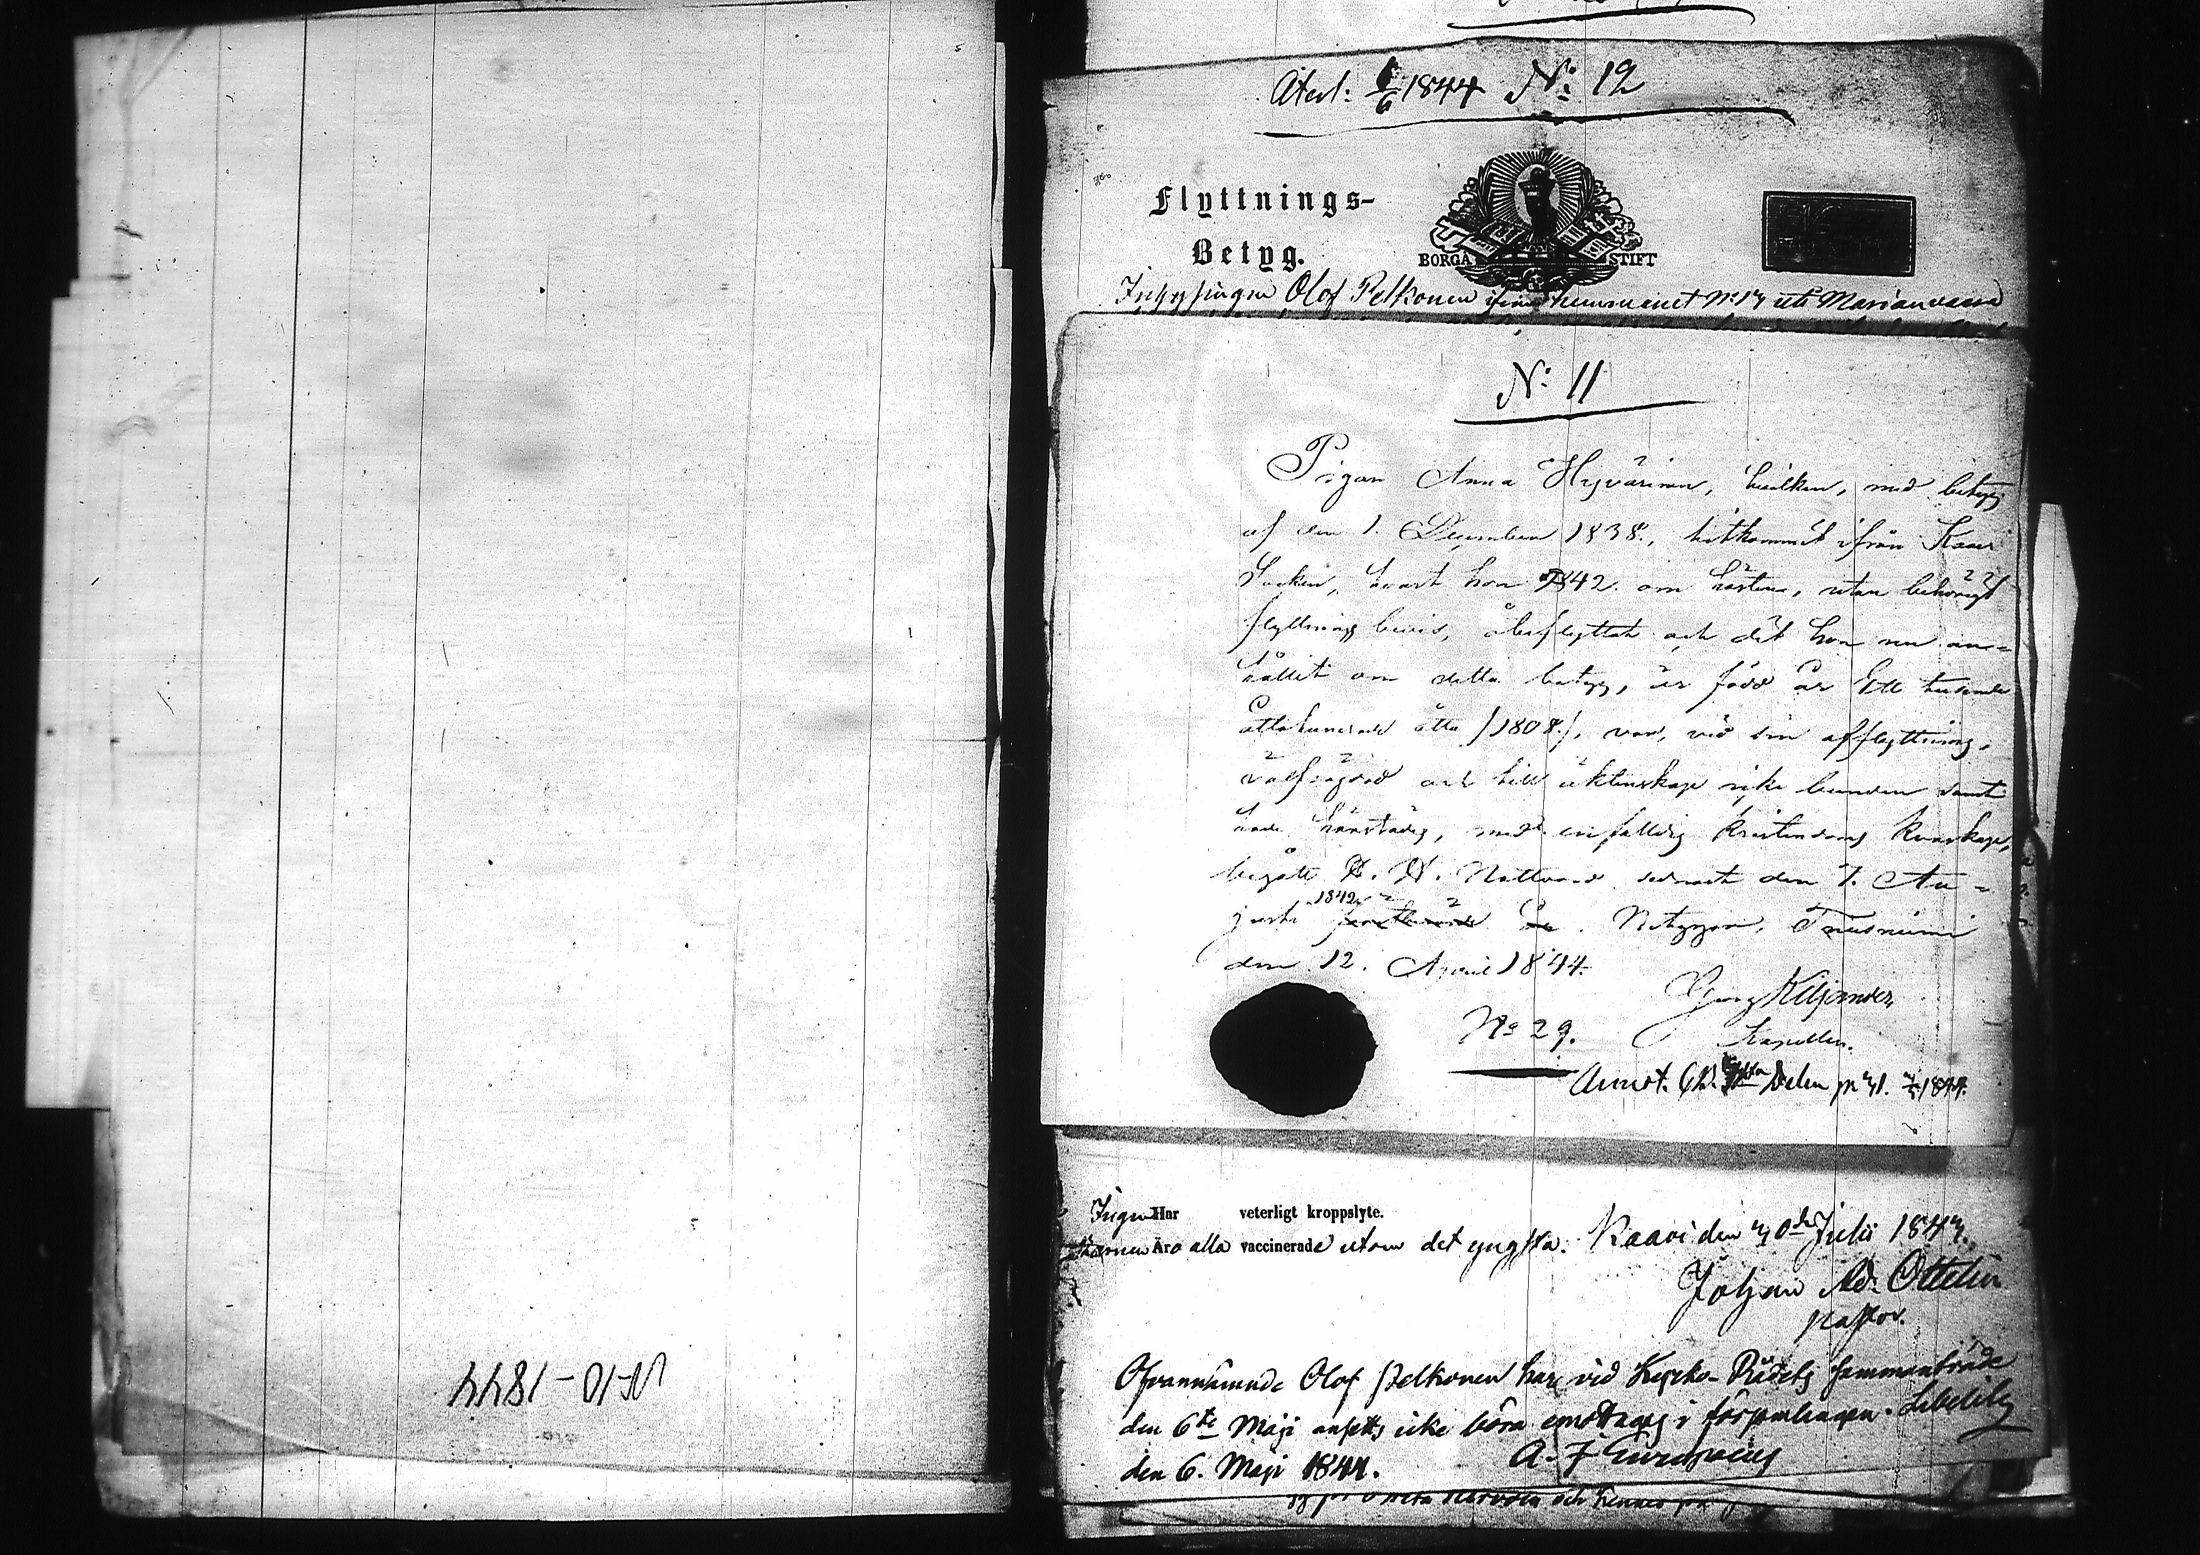 Återl: 1/6 1844 No: 12
Flyttnings-
Betyg.
BORGÅ STIFT
Inhysingen Olof Pelkonen ifrån hemmanet No 17 uti Marianvaara
No: 11
Pigan Anna Hyvärinen, hvilken, med betyg
af den 1. December 1838, hitkommit ifrån Kaavi
Socken, hvart hon 1842 om hösten, utan behörigt
flyttnings bevis, återflyttat och dit hon nu an-
hållit om detta betyg, är född år Ett tusende
åttahundrade åtta /1808/, var, vid sin afflyttning,
välfrägdad och till äktenskap icke bunden samt
hade härstädes, med enfaldig kristendoms kunskap,
begått H. H. Nattvard sednast den 7. Au-
gusti 1842. Betygar, Tuusniemi
den 12. April 1844.
Georg Kiljander,
Kapellan.
No 29.
Annot. Delen p 71. 1844.
Inga Har veterligt kroppslyte.
Barnen Äro alla vaccinerade utom det yngsta. Kaavi den 30de Julii 1843.
Johan Ad. Ottelin
pastor.
Ofvannämnde Olof Pelkonen har vid Kyrko-Rådets sammanträde
den 6te Maji ansetts icke böra emottagas i församlingen. Libelits
den 6. Maji 1844. A. J.
No 10-1844